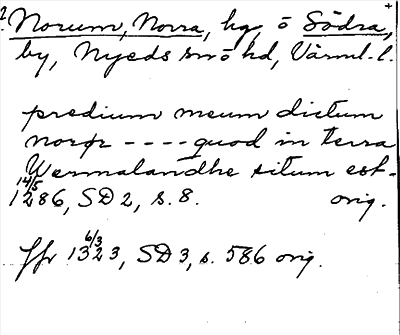 2. Norum, Norra, hg, o Södra,
by, Nyeds sn o hd, Värml. l.
predium meum dictum
norør ---- quod in terra
Wermalandhe situm est -
14/5 1286, SD 2, s. 8. orig.
ffr 6/3 1323, SD 3, s. 586 orig.